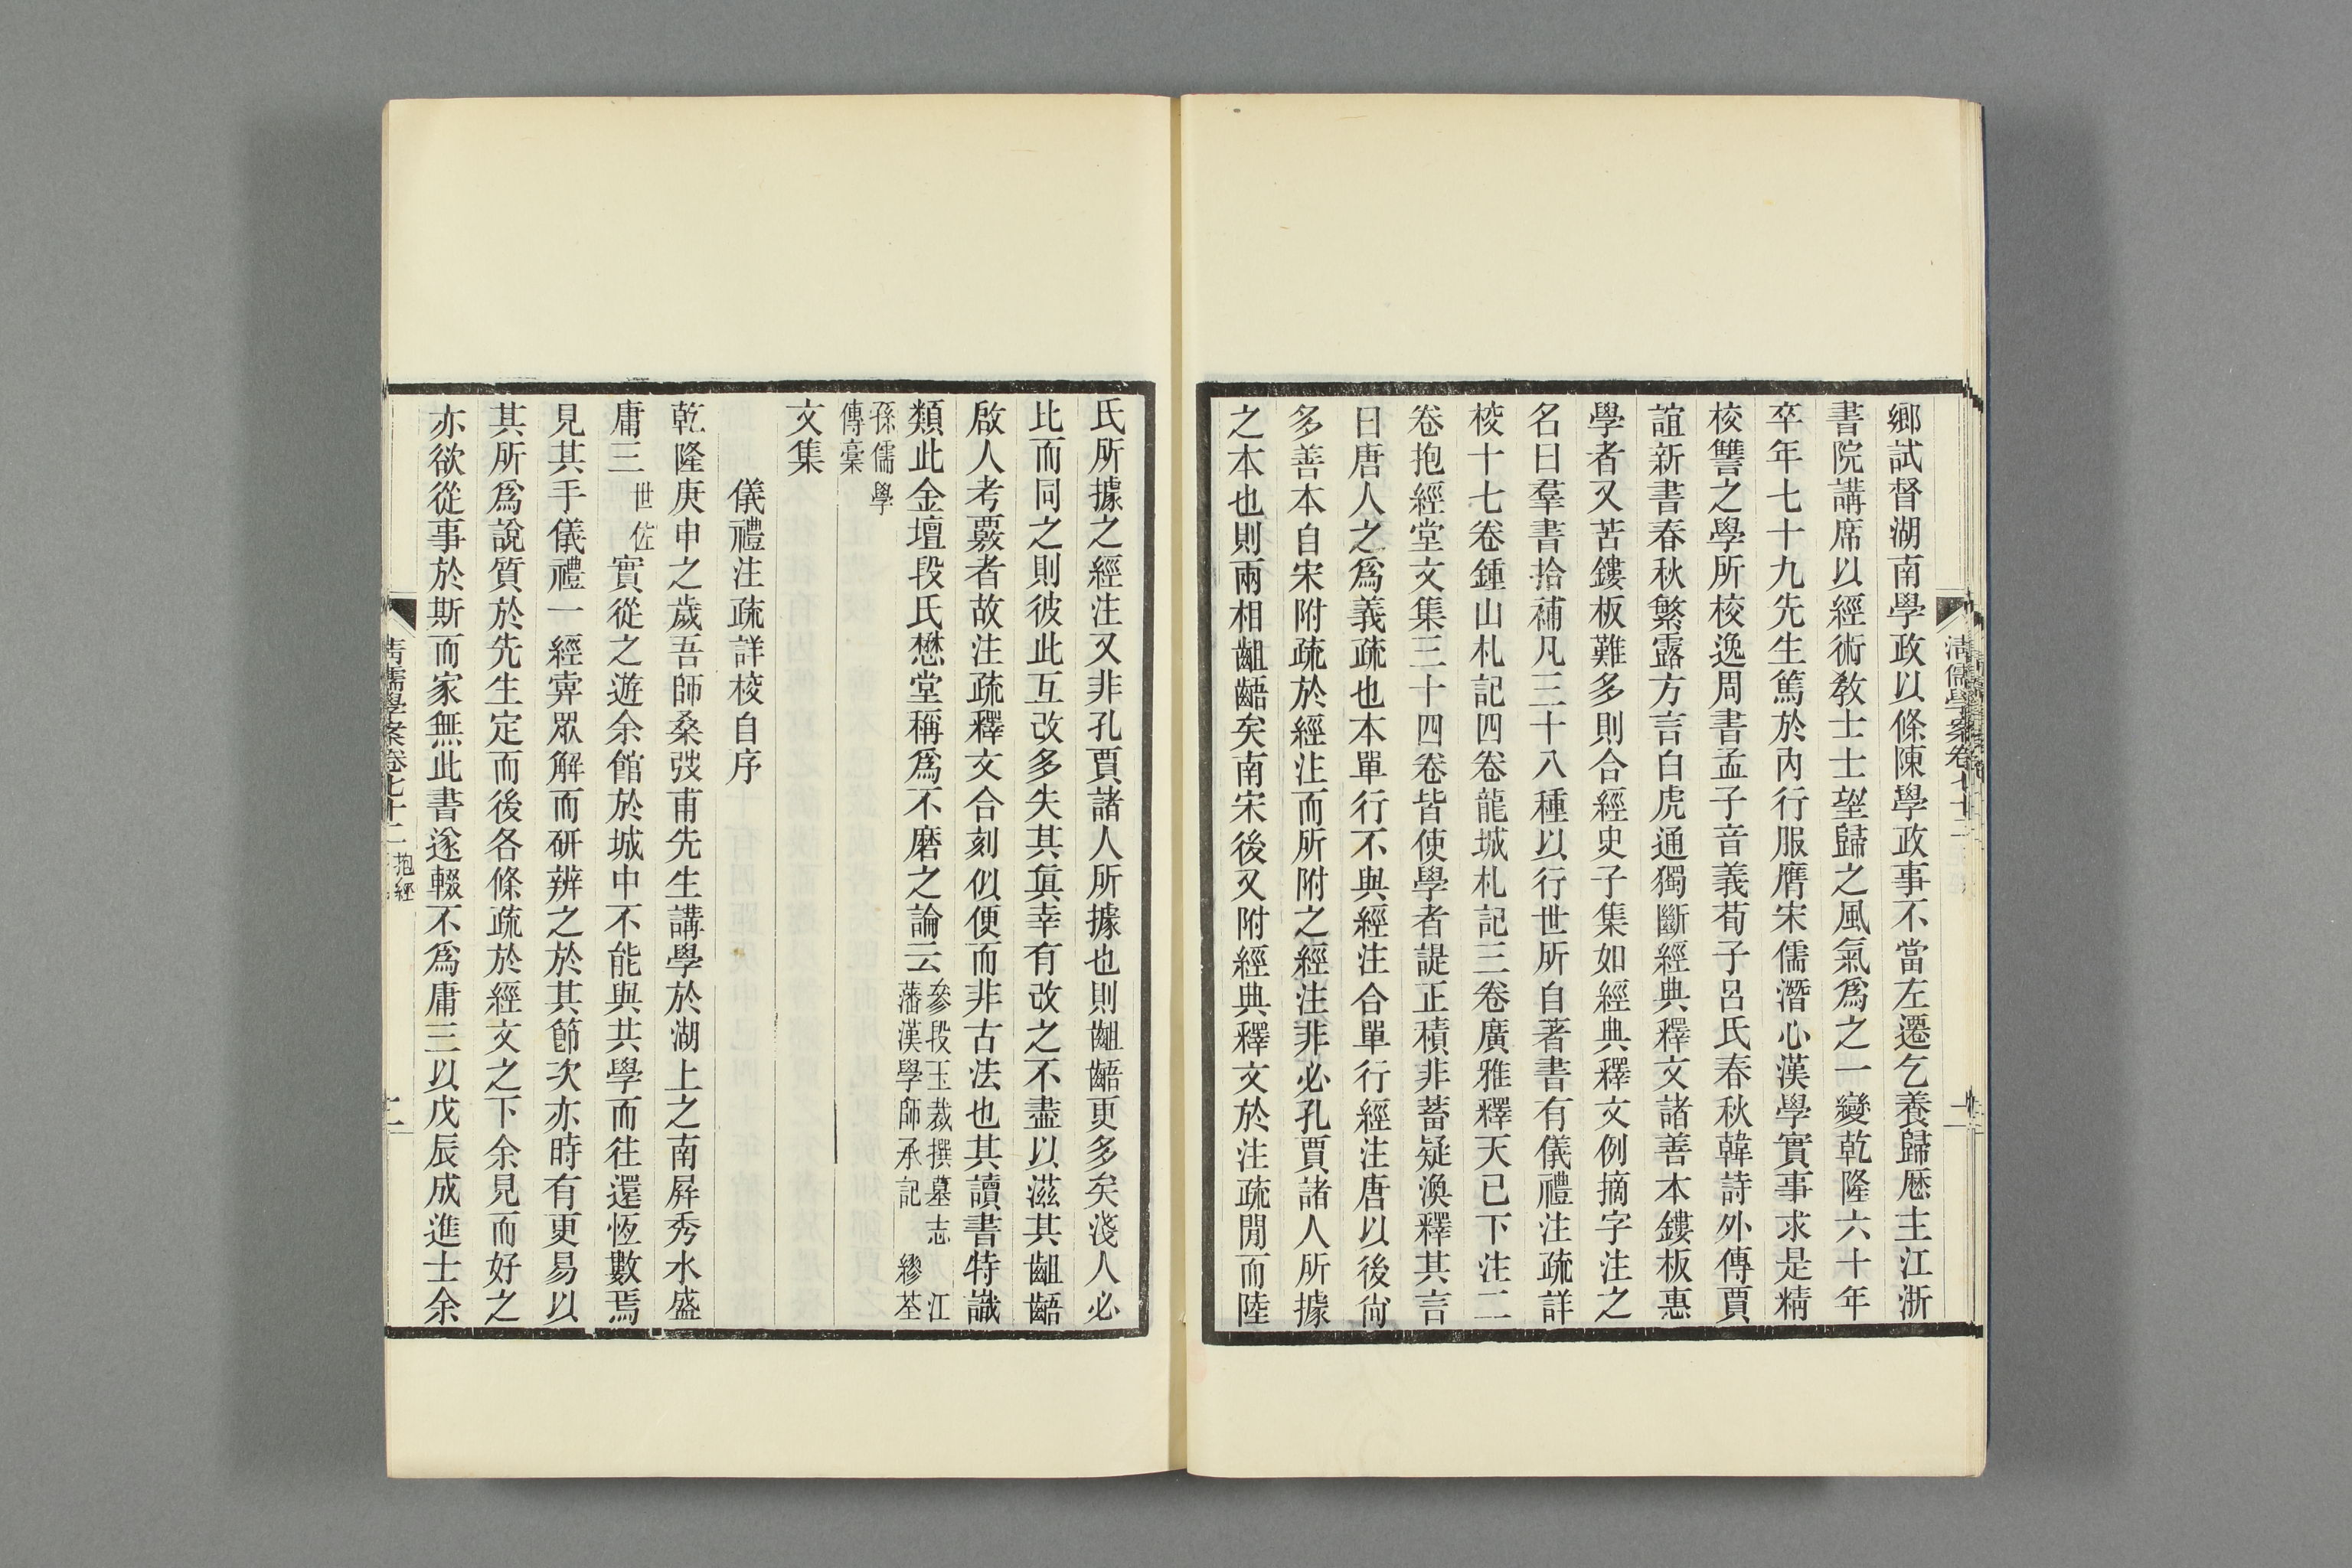 清儒學案卷七十二
鄉試督湖南學政以條陳學政事不當左遷乞養歸歷主江浙
書院講席以經術敎士士望歸之風氣爲之一變乾隆六十年
卒年七十九先生篤於內行服膺宋儒潛心漢學實事求是精
校讐之學所校逸周書孟子音義荀子呂氏春秋韓詩外傳賈
誼新書春秋繁露方言白虎通獨斷經典釋文諸善本鏤板惠
學者又苦鏤板難多則合經史子集如經典釋文例摘字注之
名曰羣書拾補凡三十八種以行世所自著書有儀禮注疏詳
校十七卷鍾山札記四卷龍城札記三卷廣雅釋天已下注二
卷抱經堂文集三十四卷皆使學者諟正積非蓄疑渙釋其言
曰唐人之爲義疏也本單行不與經注合單行經注唐以後尙
多善本自宋附疏於經注而所附之經注非必孔賈諸人所據
之本也則兩相齟齬矣南宋後又附經典釋文於注疏閒而陸
氏所據之經注又非孔賈諸人所據也則齟齬更多矣淺人必
比而同之則彼此互改多失其眞幸有改之不盡以滋其齟齬
啟人考覈者故注疏釋文合刻似便而非古法也其讀書特識
類此金壇段氏懋堂稱爲不磨之論云
參段玉裁撰墓志 江
藩漢學師承記 繆荃
孫儒學
傳稾
文集
儀禮注疏詳校自序
乾隆庚申之歲吾師桑弢甫先生講學於湖上之南屛秀水盛
庸三世佐實從之遊余館於城中不能與共學而往還恆數焉
見其手儀禮一經寀眾解而研辨之於其節次亦時有更易以
其所爲說質於先生定而後各條疏於經文之下余見而好之
亦欲從事於斯而家無此書遂輟不爲庸三以戊辰成進士余
淸儒學案卷七十二 抱經
二